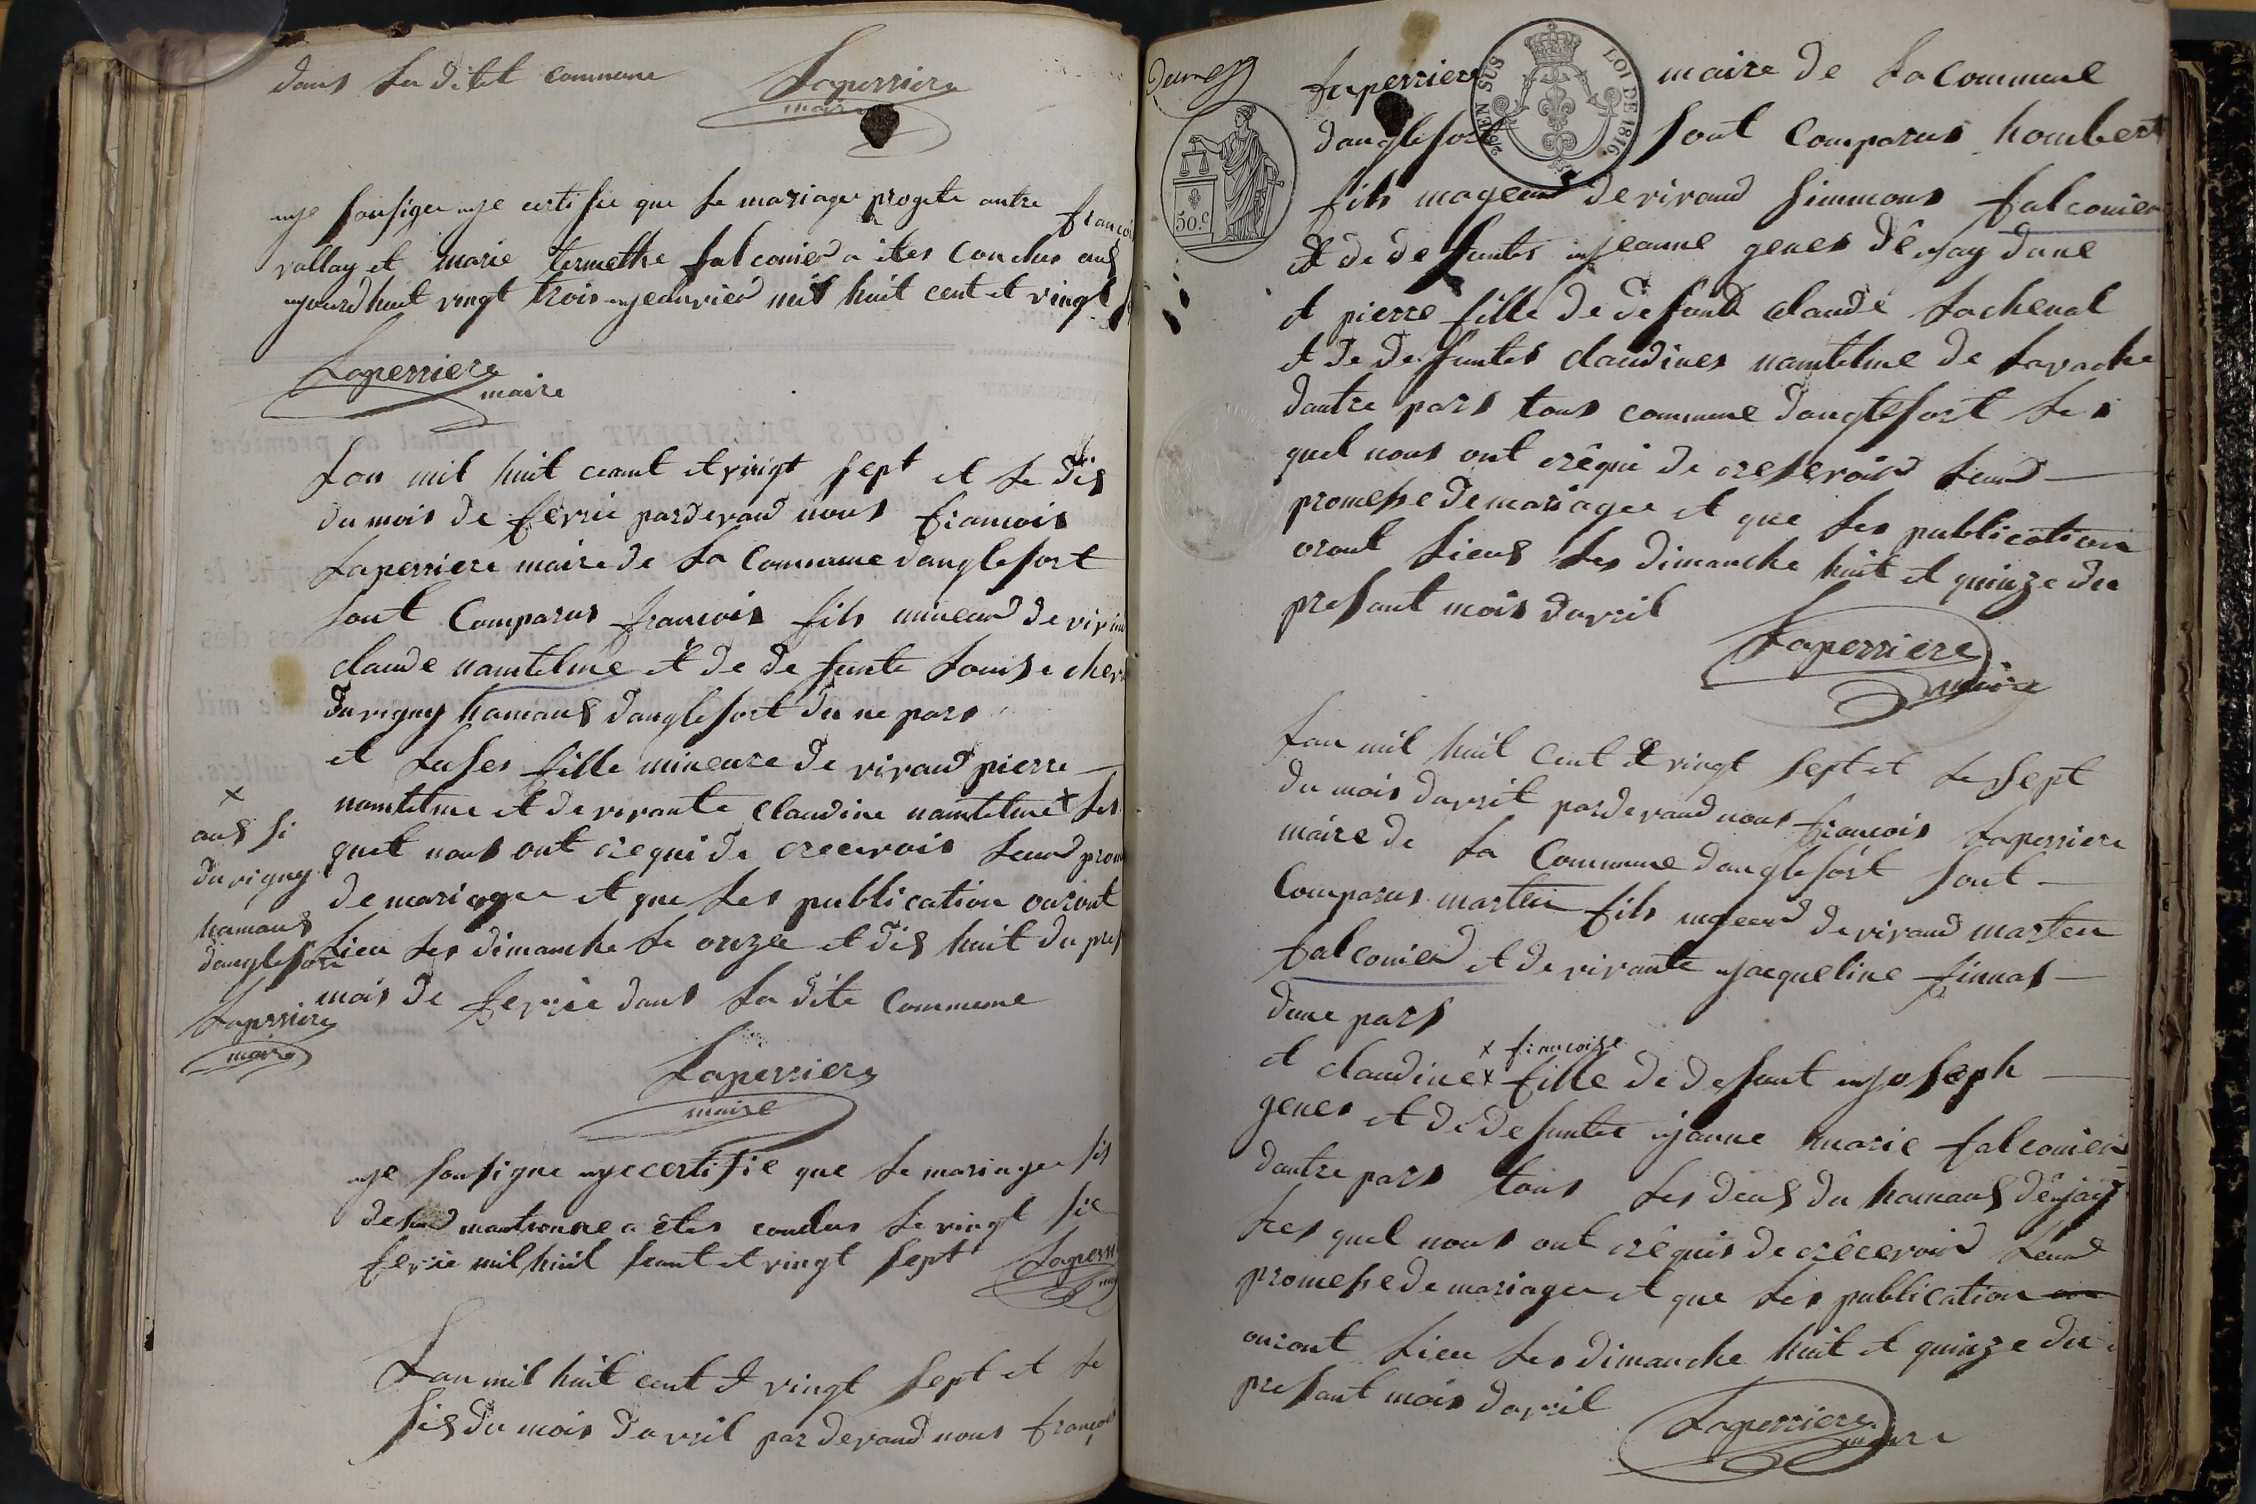 dans la ditet commune
Laperriere
maire
nje sousigne nje certifie que le mariage progete autre francoi
vallay et marie termethe falconier a êtes conclus aus
njourdhuit vingt trois njeanvier mil huit cent et vingt
Laperriere
maire
Lan mil huit ceant et vingt sept et le dis
du mois de fevrie pardevand nous francois
Laperriere maire de la commune danglefort
sont Comparus francois fils mineur de viv
claude namtelme et de defunte Louise cher
du vigny hamaus danglefort du ne pars
et Luses fille mineure de vivand pierre
namtelme et de vivante claudine namtelme x les
quel nous ont requi de recevois leur prom
de mariage et que les publication oront
lieu les dimanche le onze et dis huit du pres
mois de fevrie dans la dite commune
x
aus si
du vigny
hamaus
danglefort
Laperriere
maire
Laperriere
maire
nje sousigne nje certifie que le mariage sis
desus mantionne a êtes conclus le vingt sis
fevrie mil huit seant et vingt sept
Laperr
Lan mil huit cent et vingt sept et le
sis du mois davril par devand nous francois
dume
Laperriere maire de la commune
danglefort sont comparus houmbert
TIMB. EN SUS LOI DE 1816
50.c
fils mageur de vivand simmons falconier
et de defuntes njeanne genes dênjay dune
et pierre fille de defunt claude Lachenal
et de defuntes claudines namtelme de Lavache
dautre pars tous commune danglefort les
quel nous ont rêqui de resevoir leur
promesse de mariage et que les publication
oront lieus les dimanche huit et quinze du
presant mois davril
Laperriere
maire
Lan mil huit cent et vingt sept et le sept
du mois davrit pardevand nous francois Laperriere
maire de la Commune danglefort sont
Comparus marten fils mageur de vivand marten
falconier et de vivante njacqueline finnas
dune pars
x francoize
et claudine x fille de defunt njoseph
genes et de defuntee njanne marie falconier
dautre pars tous les deus du hamaus dênjay
les quel nous ont rêquis de rêcevoir leur
promesse de mariage et que les publication
onront lieu les dimanche huit et quinze du
presant mois davril
Laperriere
maire